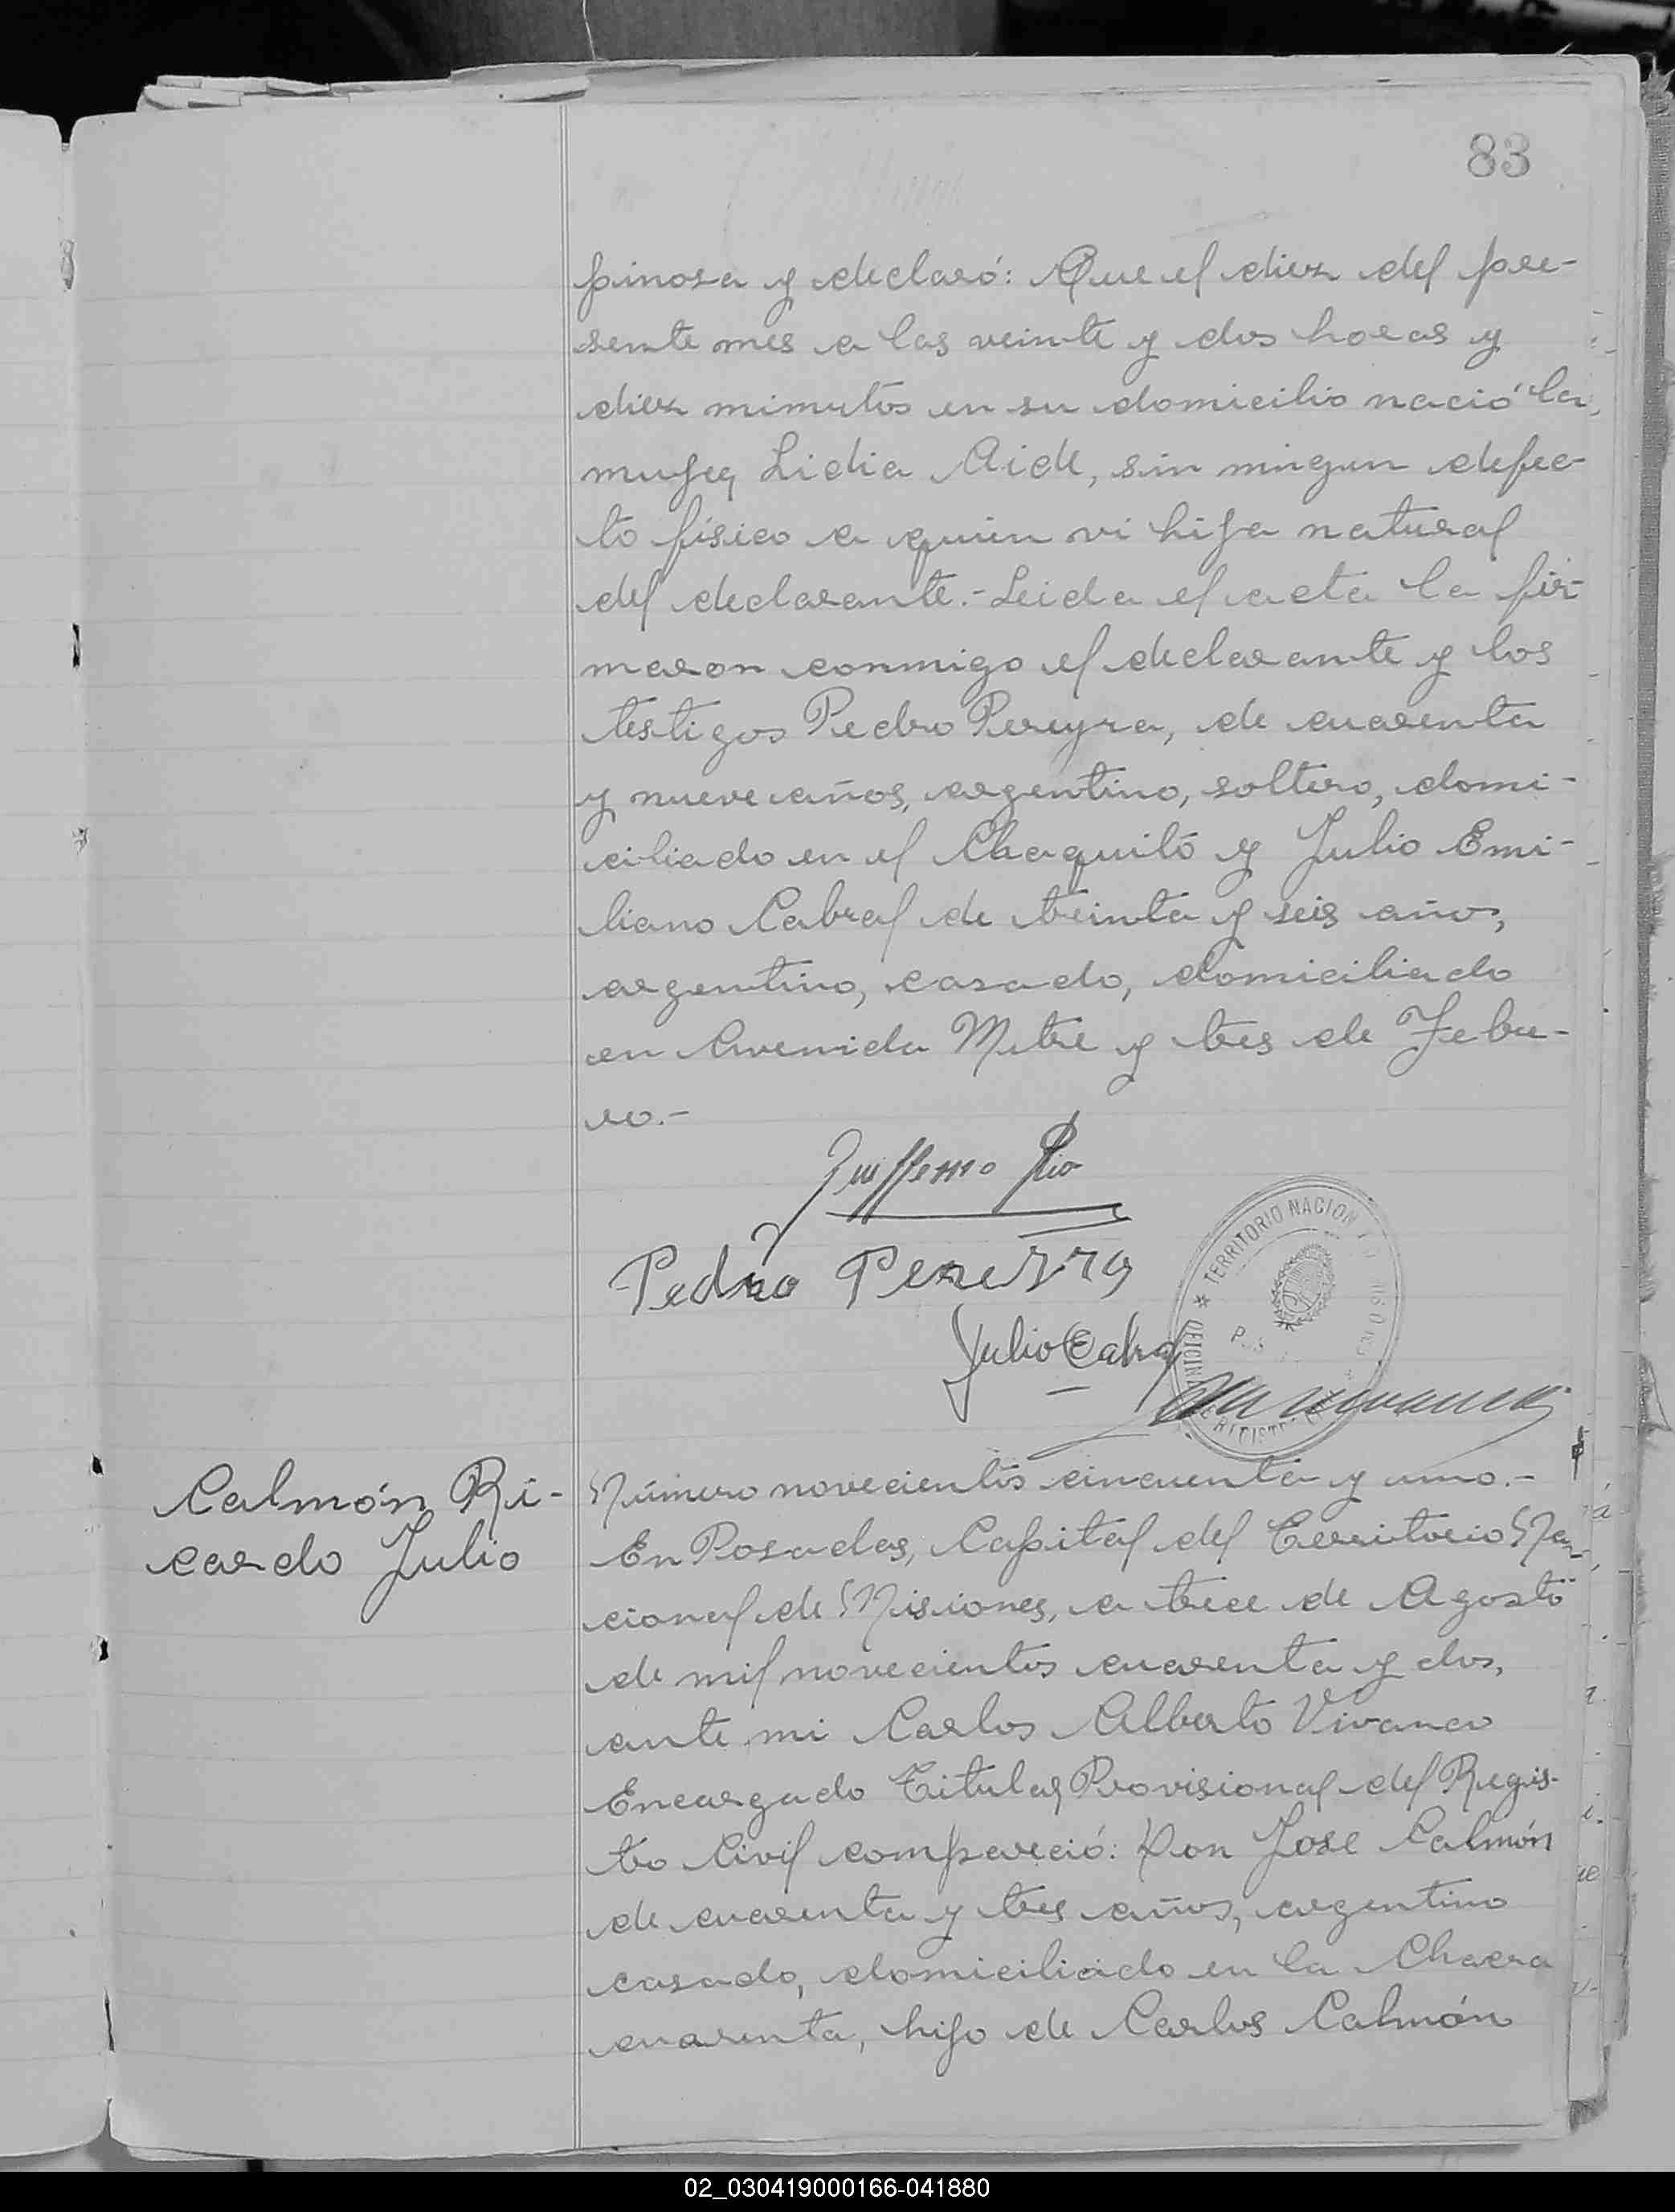 83
pinosa y declaró: Que el diez del pre-
sente mes a las veinte y dos horas y
diez minutos en su domicilio nació la
mujer, Lidia Aide, sin ningun defec-
to físico a quien vi hija natural
del declarante.- Leida el acta la fir-
maron conmigo el declarante y los
testigos Pedro Pereyra, de cuarenta
y nueve años, argentino, soltero, domi-
ciliado en el Chaquito y Julio Emi-
liano Cabral de treinta y seis años,
argentino, casado, domiciliado
en Avenida Mitre y tres de Febre-
ro.-
Pedro Pereyra
Julio E Cabral
TERRITORIO NACION
OFICINA
Calmón Ri-
cardo Julio
Número novecientos cincuenta y uno.-
En Posadas, Capital del Territorio Na-
cional de Misiones, a trece de Agosto
de mil novecientos cuarenta y dos,
ante mi Carlos Alberto Vivanco
Encargado Titular Provisional del Regis-
tro Civil compareció: Don Jose Calmón
de cuarenta y tres años, argentino
casado, domiciliado en la Chacra
cuarenta, hijo de Carlos Calmón
02_030419000166-041880